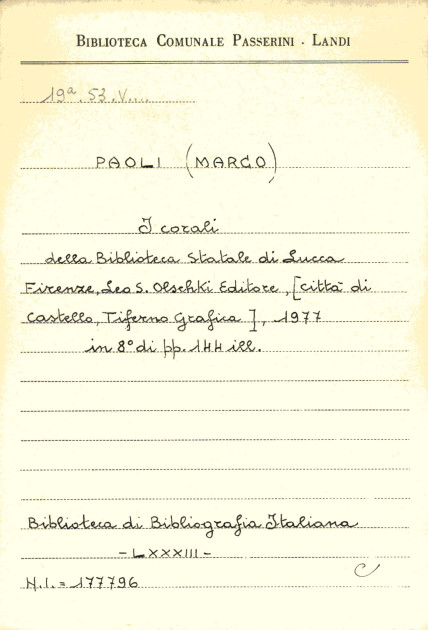 BIBLIOTECA COMUNALE PASSERINI - LANDI
19ª.53.V....
PAOLI (MARCO)
I corali
della Biblioteca Statale di Lucca
Firenze, Leo S. Olschki Editore, [Città di
Castello, Tiferno Grafica], 1977
in 8° di pp. 144 ill.
Biblioteca di Bibliografia Italiana
- LXXXIII -
N.I. = 177796
C